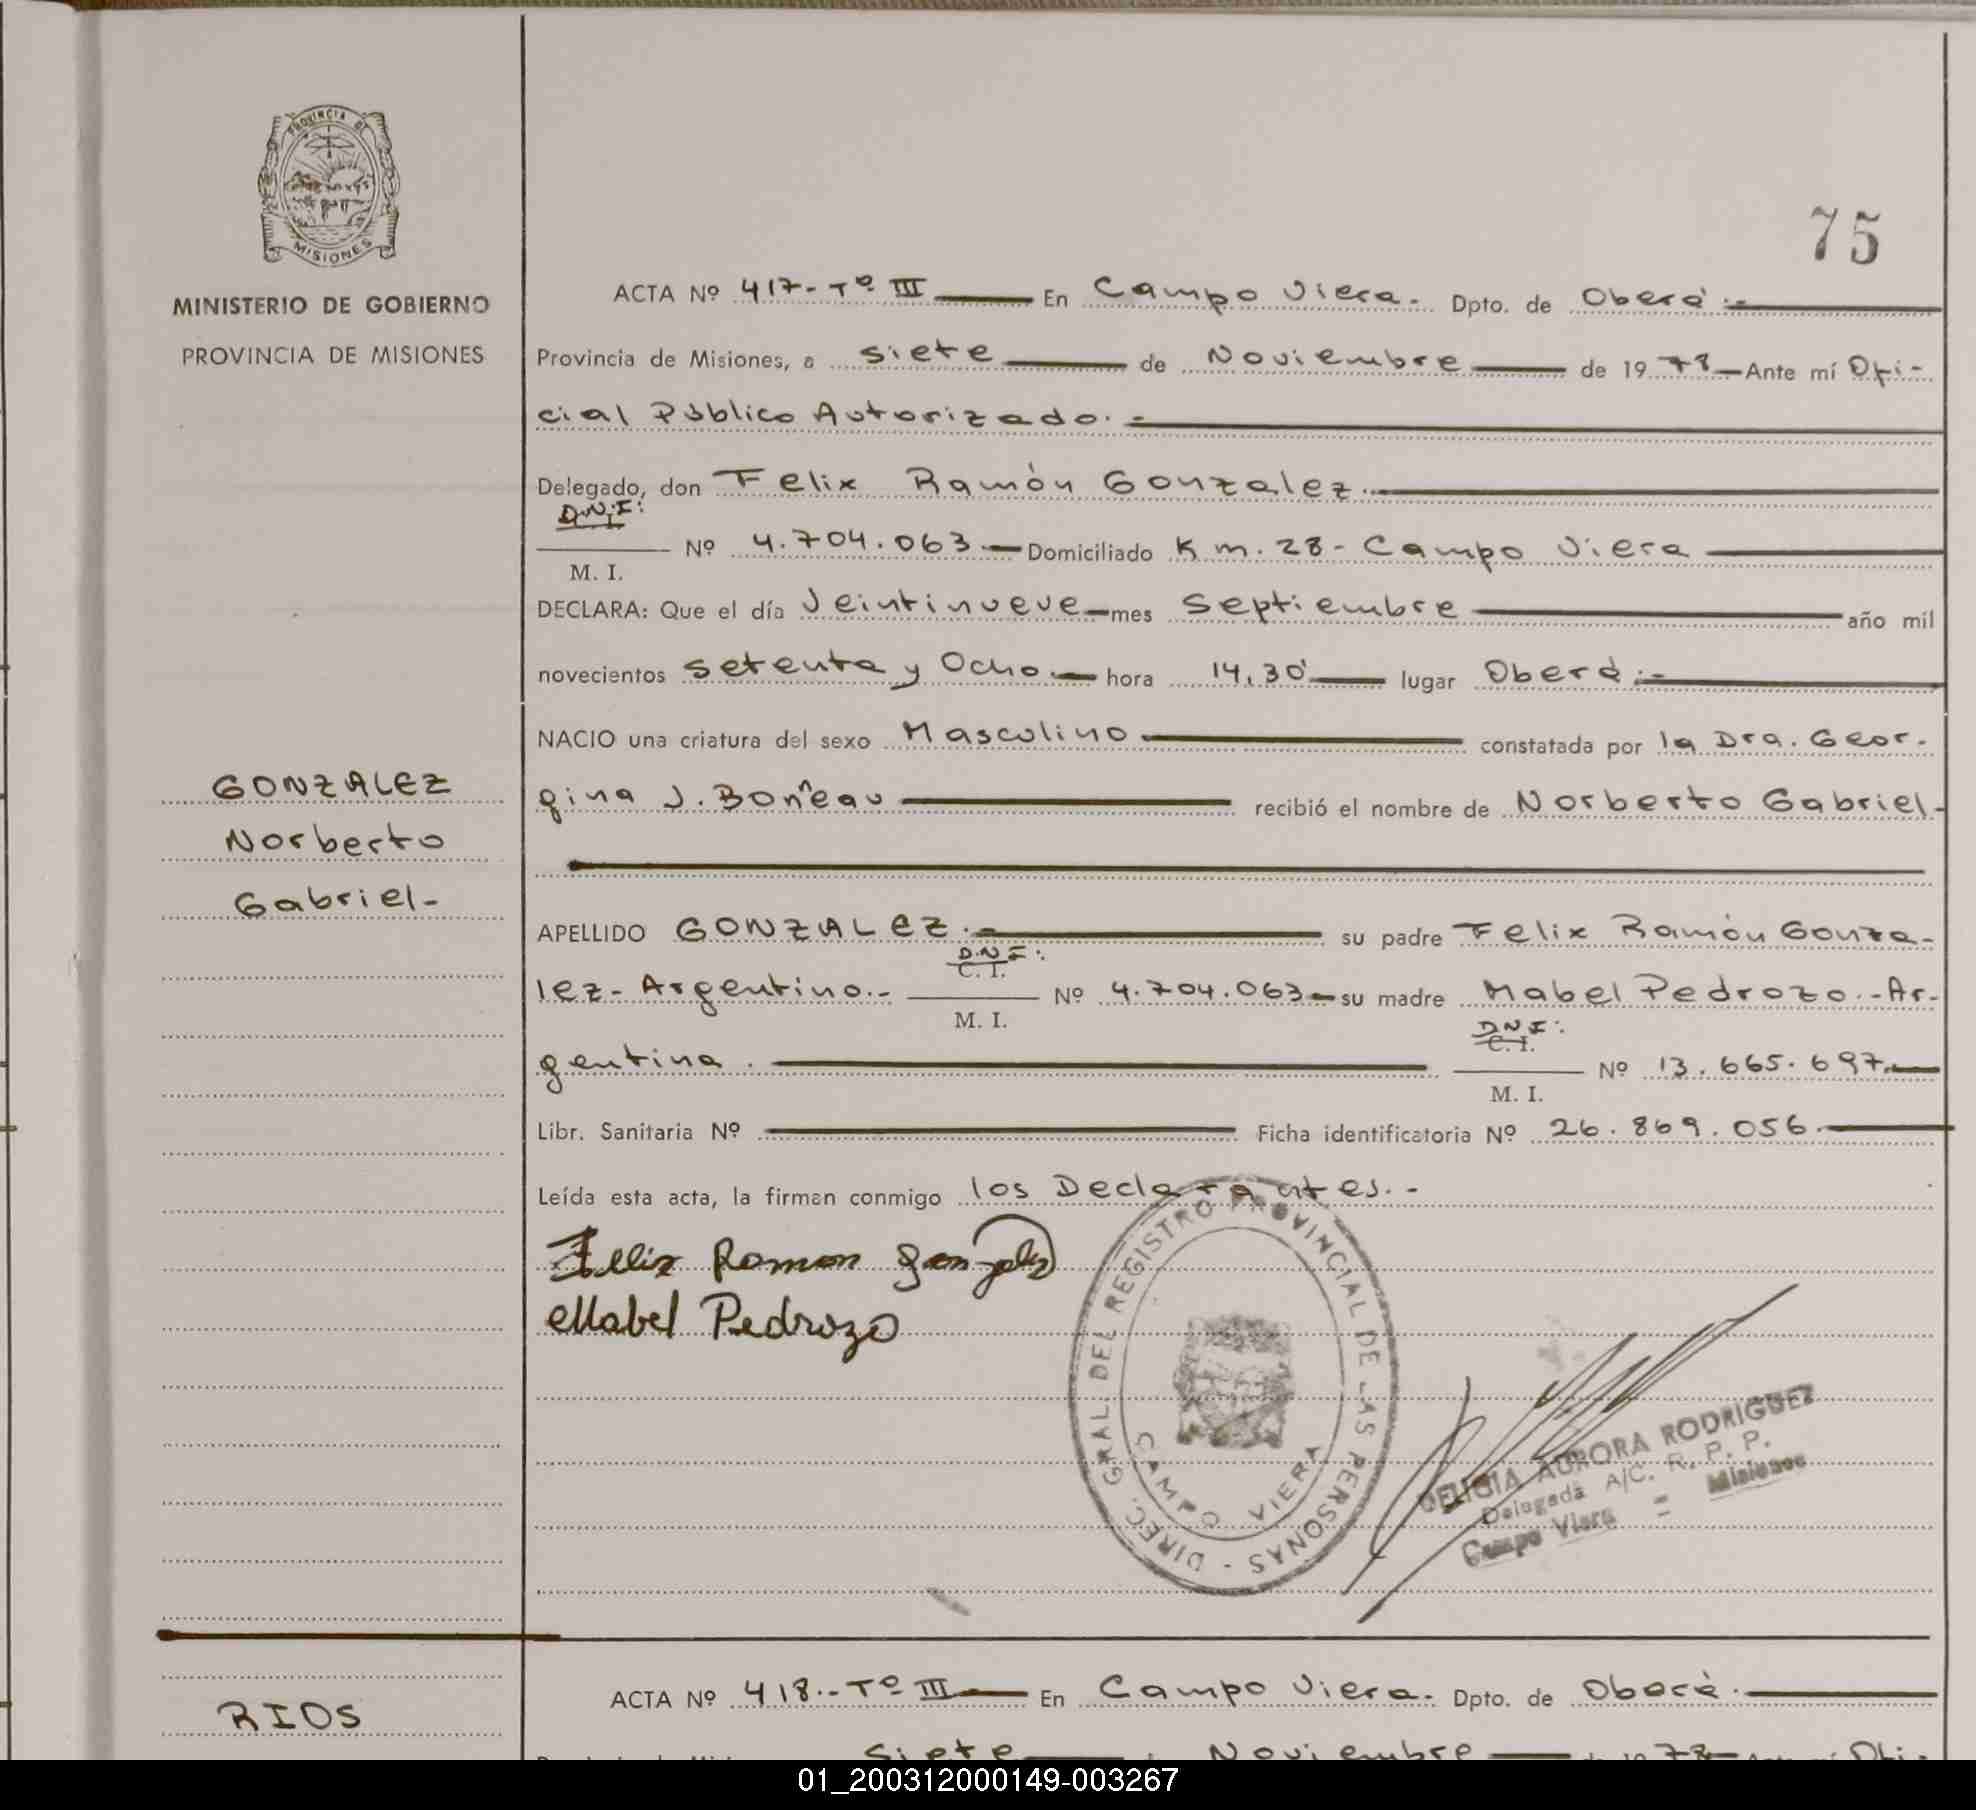 PROVINCIA DE
MISIONES
MINISTERIO DE GOBIERNO
PROVINCIA DE MISIONES
GONZALEZ
Norberto
Gabriel-
75
ACTA Nº 417-Tº III En Campo Viera.- Dpto. de Oberá.-
Provincia de Misiones, a siete de Noviembre de 1978 Ante mí Ofi-
cial Público Autorizado.-
Delegado, don Felix Ramón Gonzalez.-
D.N.I:
Nº 4.704.063.- Domiciliado Km. 28- Campo Viera
M. I.
DECLARA: Que el día Veintinueve mes Septiembre año mil
novecientos setenta y Ocho.- hora 14,30 lugar Oberá.-
NACIO una criatura del sexo Masculino constatada por la Dra. Geor-
gina J. Boneau recibió el nombre de Norberto Gabriel-
APELLIDO GONZALEZ.- su padre Felix Ramón Gonza-
D.N.I:
C. I.
lez- Argentino.- Nº 4.704.063- su madre Mabel Pedrozo.-Ar-
M. I.
D.N.I:
C. I.
gentina. Nº 13.665.697.-
M. I.
Libr. Sanitaria Nº Ficha identificatoria Nº 26.869.056.-
Leída esta acta, la firman conmigo los Declarantes.-
Felix Ramon Gonzalez
Mabel Pedrozo
DIREC. GRAL. DEL REGISTRO PROVINCIAL DE LAS PERSONAS -
CAMPO VIERA
DELICIA AURORA RODRIGUEZ
Delegada A/C. R. P. P.
Campo Viera = Misiones
RIOS
ACTA Nº 418.-Tº III En Campo Viera.- Dpto. de Oberá.-
Siete Noviembre 78 Ofi-
01_200312000149-003267